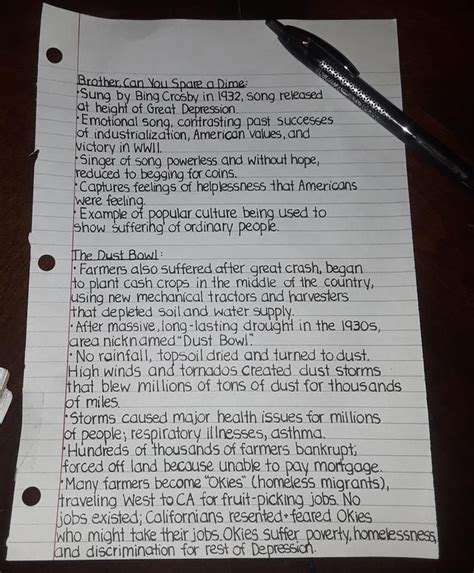 Brother, Can You Spare a Dime:
• Sung by Bing Crosby in 1932, song released
at height of Great Depression.
• Emotional song, contrasting past successes
of industrialization, American values, and
victory in WWII.
• Singer of song powerless and without hope,
reduced to begging for coins.
• Captures feelings of helplessness that Americans
were feeling.
• Example of popular culture being used to
show suffering of ordinary people.
The Dust Bowl:
• Farmers also suffered after great crash, began
to plant cash crops in the middle of the country,
using new mechanical tractors and harvesters
that depleted soil and water supply.
• After massive, long-lasting drought in the 1930s,
area nicknamed "Dust Bowl"
• No rainfall, topsoil dried and turned to dust.
High winds and tornados created dust storms
that blew millions of tons of dust for thousands
of miles.
• Storms caused major health issues for millions
of people; respiratory illnesses, asthma.
• Hundreds of thousands of farmers bankrupt;
forced off land because unable to pay mortgage.
• Many farmers become "Okies" (homeless migrants),
traveling West to CA for fruit-picking jobs. No
jobs existed; Californians resented + feared Okies
who might take their jobs. Okies suffer poverty, homelessness,
and discrimination for rest of Depression.